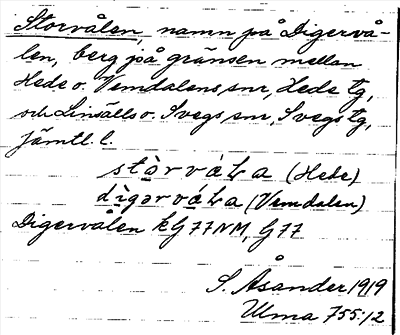 Storvålen, namn på Digervå-
len, berg på gränsen mellan
Hede o. Vemdalens snr, Hede tg,
och Linsälls o. Svegs snr, Svegs tg,
Jämtl. l.
stòrváLa (Hede)
dìgərváLa (Vemdalen)
Digervålen kG77NM, G77
S. Åsander 1919
Ulma 755:12